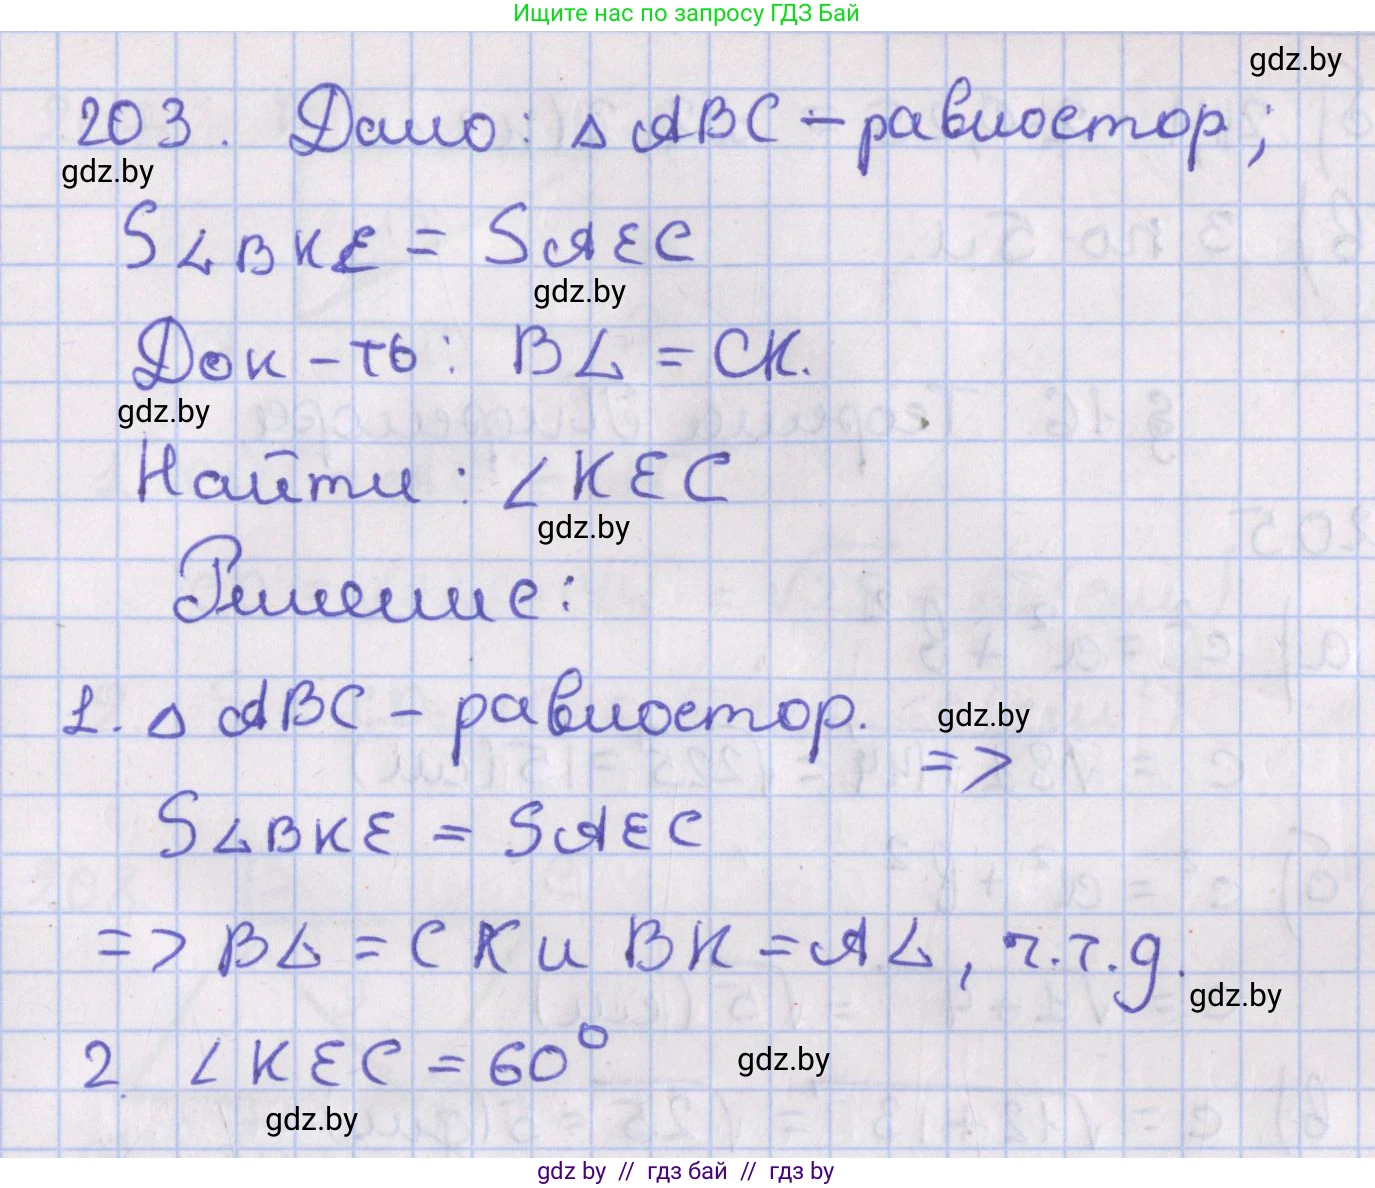 Ищите нас по запросу ГДЗ Бай
gdz.by
203. Дано: △ ABC – равностор.;
gdz.by
S∠BKE = SAEC
gdz.by
Док-ть: B∠ = CK.
gdz.by
Найти: ∠KEC
gdz.by
Решение:
1. △ ABC – равностор.
gdz.by
=>
S∠BKE = SAEC
=> B∠ = CK и BK = A∠, ч.т.д.
gdz.by
2. ∠KEC = 60°
gdz.by
gdz.by
gdz by // гдз бай // гдз by